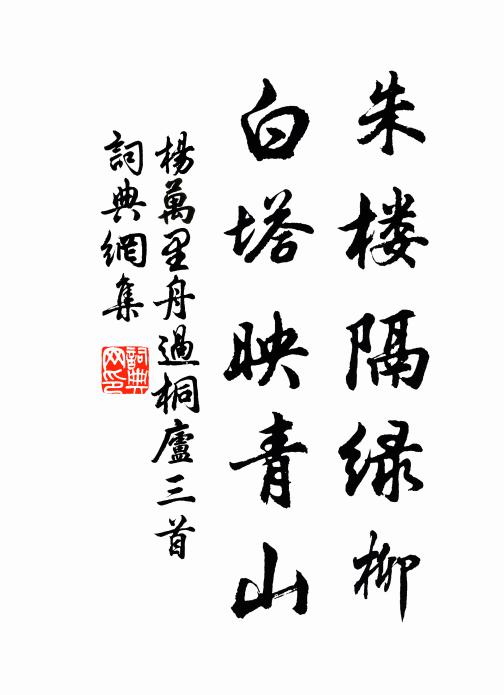 朱楼隔绿柳
白塔映青山
楊萬里舟過桐廬三首
詞典網集
詞典网印